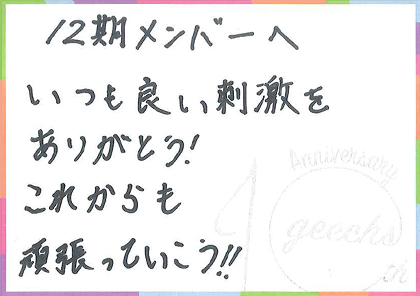 12期メンバーへ
いつも良い刺激を
ありがとう!
これからも
頑張っていこう!!
Anniversary
10
geechs
th